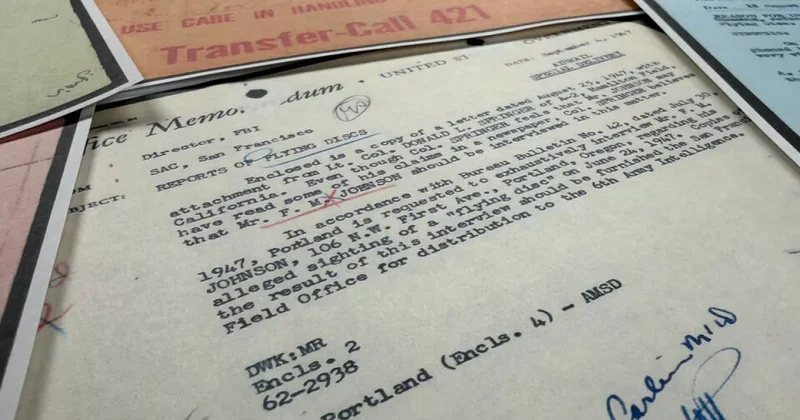 USE CARE IN HANDLING
Transfer-Call 421
fice Memo. dum UNITED ST
DATE: 4, 1947
Director, FBI
SPECIAL DELIVERY
SAC, San Francisco
JECT: REPORTS OF FLYING DISCS
Enclosed is a copy of a letter dated August 25, 1947, with
attachment from Lt. Col. DONALD L. SPRINGER of Hamilton Field,
California. Even though Col. SPRINGER feels that Mr. JOHNSON may
have read some of his claims in a newspaper, Col. SPRINGER believes
that Mr. F. M. JOHNSON should be interviewed in this matter.
In accordance with Bureau Bulletin No. 42, dated July 30,
1947, Portland is requested to exhaustively interview Mr. F. M.
JOHNSON, 106 N.W. First Ave., Portland, Oregon, regarding his
alleged sighting of a "flying disc" on June 24, 1947. Copies of
the result of this interview should be furnished the San Fran
Field Office for distribution to the 6th Army Intelligence.
DWK:MR
Encls. 2
62-2938
Portland (Encls. 4) - AMSD